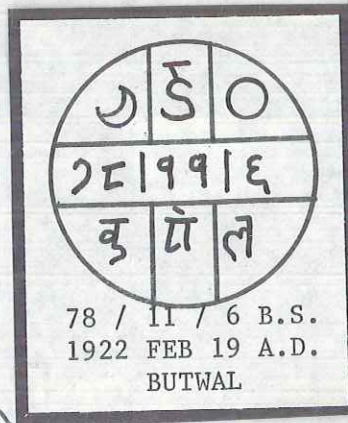 डे
७८|११|६
बु टौ ल
78 / 11 / 6 B.S.
1922 FEB 19 A.D.
BUTWAL